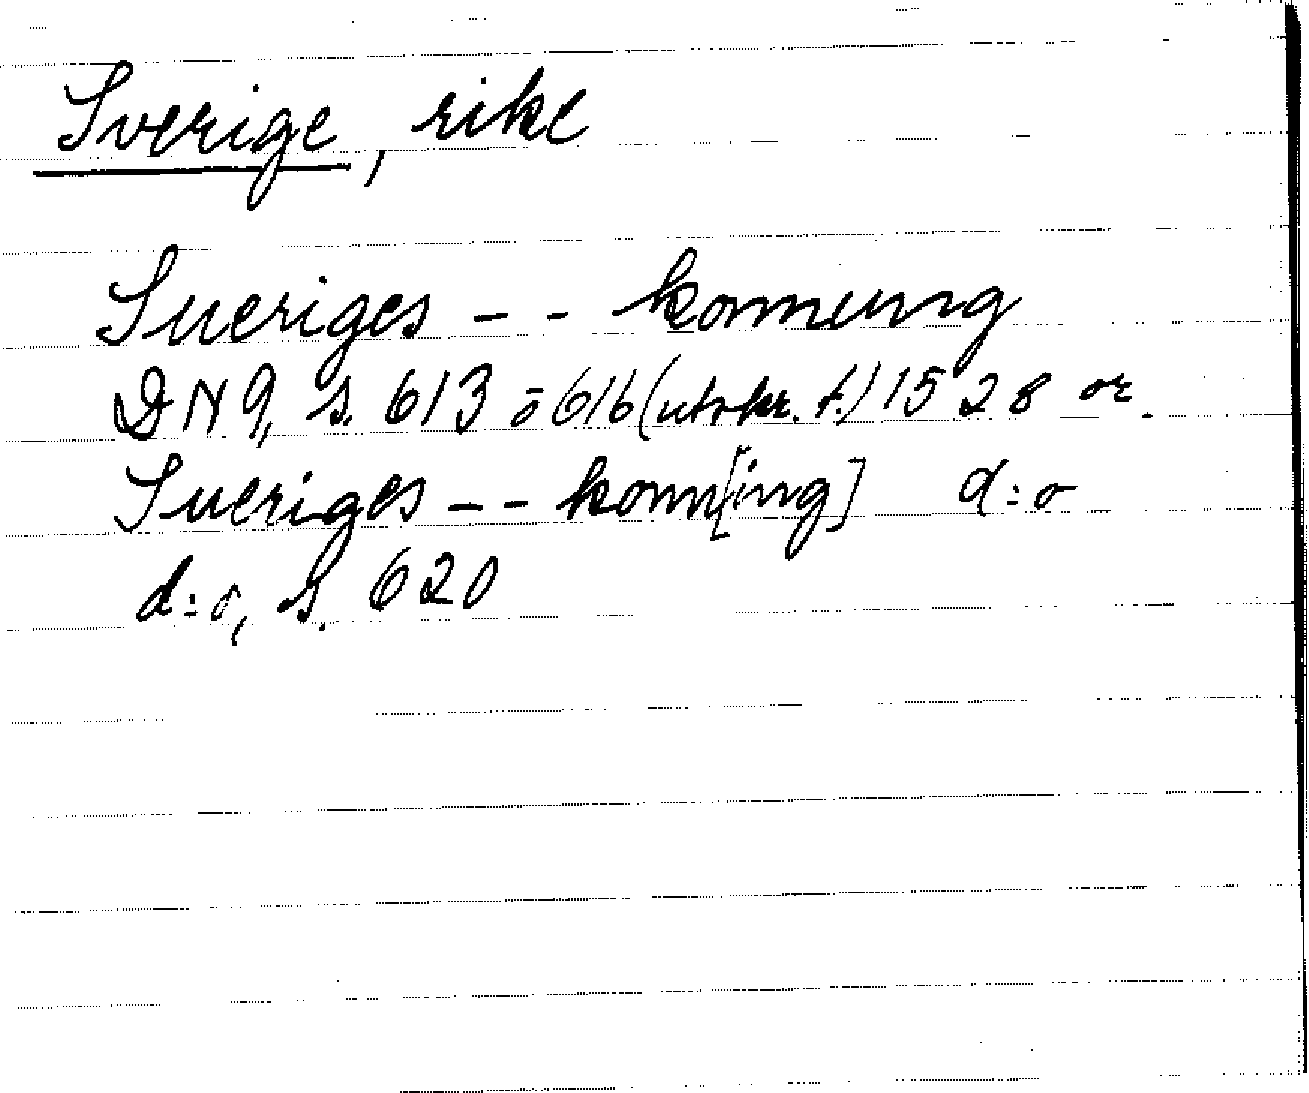 Sverige, rike
Sueriges - - konnung
DN 9, s. 613 o 616 (utskr. f.) 1528 or.
Sueriges - - konn[ing] d:o
d:o, s. 620